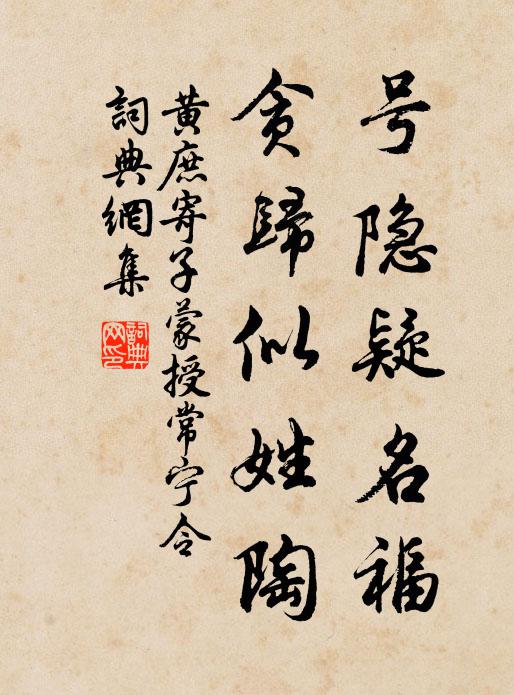 号隐疑名福
贪歸似姓陶
黄庶寄子蒙授常宁令
詞典網集
詞典
网印